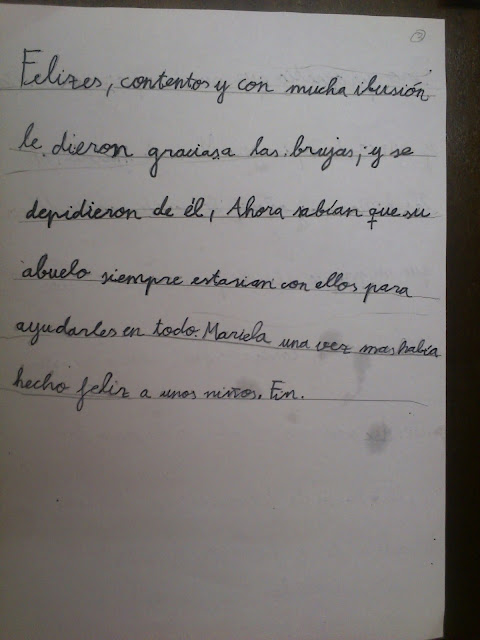 Felizes, contentos y con mucha ilusión
le dieron gracias a las brujas, y se
depidieron de él, Ahora sabían que su
abuelo siempre estarian con ellos para
ayudarles en todo. Mariela una vez mas había
hecho feliz a unos niños. Fin.